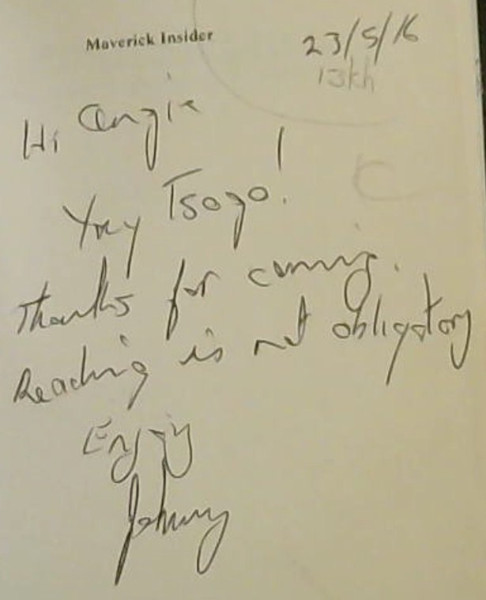 Maverick Insider
23/5/16
Hi Angie
Yay Tsogo!
Thanks for coming.
Reading is not obligatory
Enjoy
Johnny